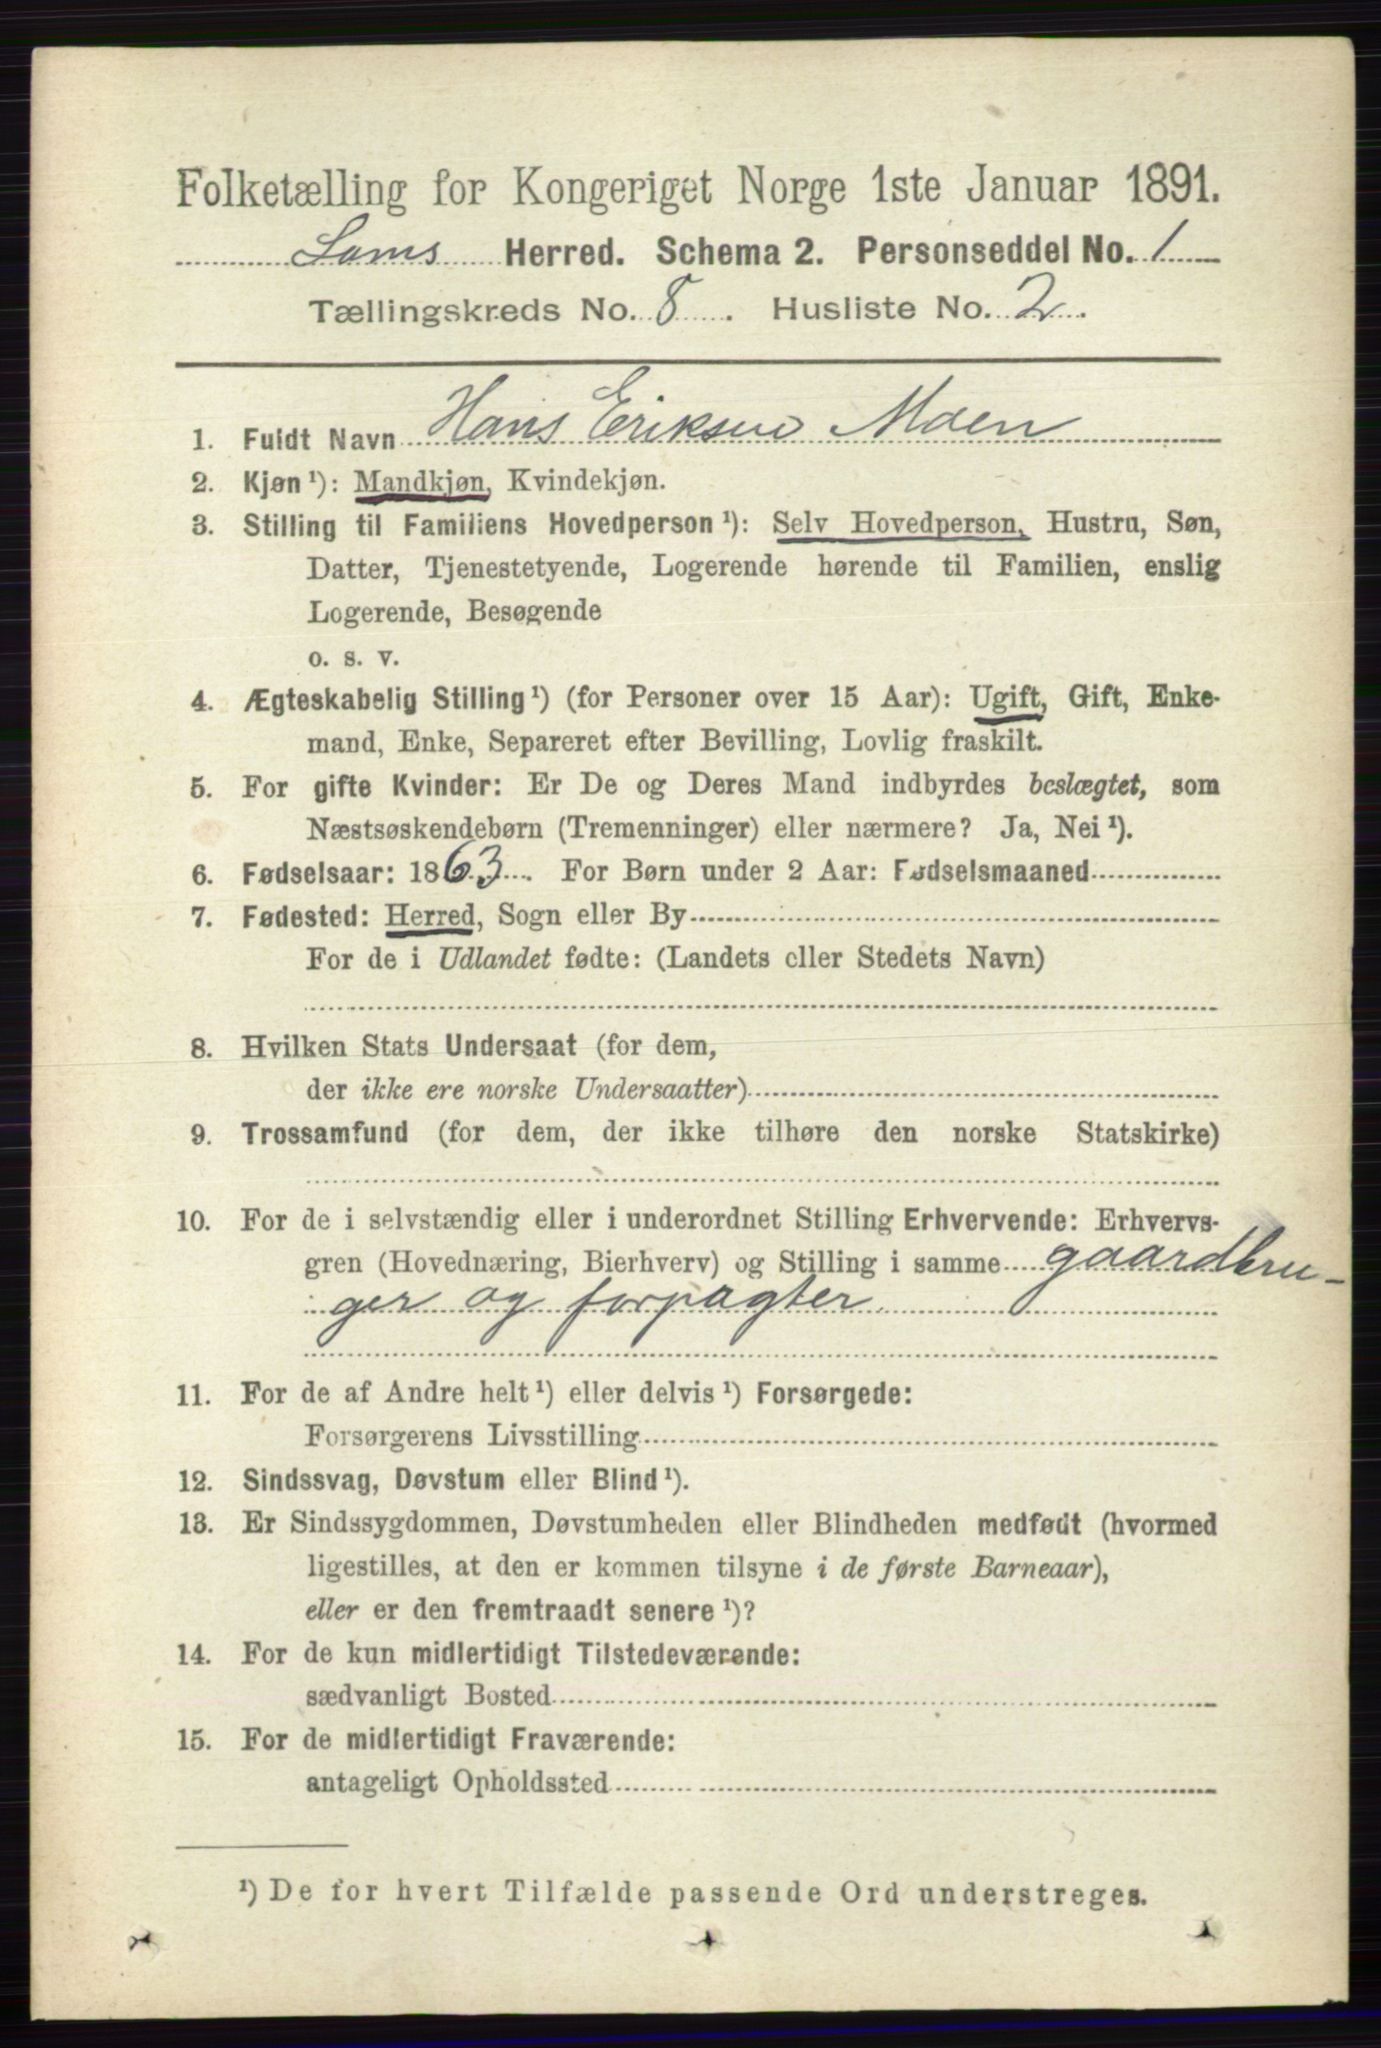 Folketælling for Kongeriget Norge 1ste Januar 1891.
Loms Herred. Schema 2. Personseddel No. 1
Tællingskreds No. 8. Husliste No. 2.
1. Fuldt Navn Hans Eriksen Moen
2. Kjøn ¹): Mandkjøn, Kvindekjøn.
3. Stilling til Familiens Hovedperson ¹): Selv Hovedperson, Hustru, Søn,
Datter, Tjenestetyende, Logerende hørende til Familien, enslig
Logerende, Besøgende
o. s. v.
4. Ægteskabelig Stilling ¹) (for Personer over 15 Aar): Ugift, Gift, Enke-
mand, Enke, Separeret efter Bevilling, Lovlig fraskilt.
5. For gifte Kvinder: Er De og Deres Mand indbyrdes beslægtet, som
Næstsøskendebørn (Tremenninger) eller nærmere? Ja, Nei ¹).
6. Fødselsaar: 1863. For Børn under 2 Aar: Fødselsmaaned
7. Fødested: Herred, Sogn eller By
For de i Udlandet fødte: (Landets eller Stedets Navn)
8. Hvilken Stats Undersaat (for dem,
der ikke ere norske Undersaatter)
9. Trossamfund (for dem, der ikke tilhøre den norske Statskirke)
10. For de i selvstændig eller i underordnet Stilling Erhvervende: Erhvervs-
gren (Hovednæring, Bierhverv) og Stilling i samme gaardbru-
ger og forpagter.
11. For de af Andre helt ¹) eller delvis ¹) Forsørgede:
Forsørgerens Livsstilling
12. Sindssvag, Døvstum eller Blind ¹).
13. Er Sindssygdommen, Døvstumheden eller Blindheden medfødt (hvormed
ligestilles, at den er kommen tilsyne i de første Barneaar),
eller er den fremtraadt senere ¹)?
14. For de kun midlertidigt Tilstedeværende:
sædvanligt Bosted
15. For de midlertidigt Fraværende:
antageligt Opholdssted
¹) De for hvert Tilfælde passende Ord understreges.